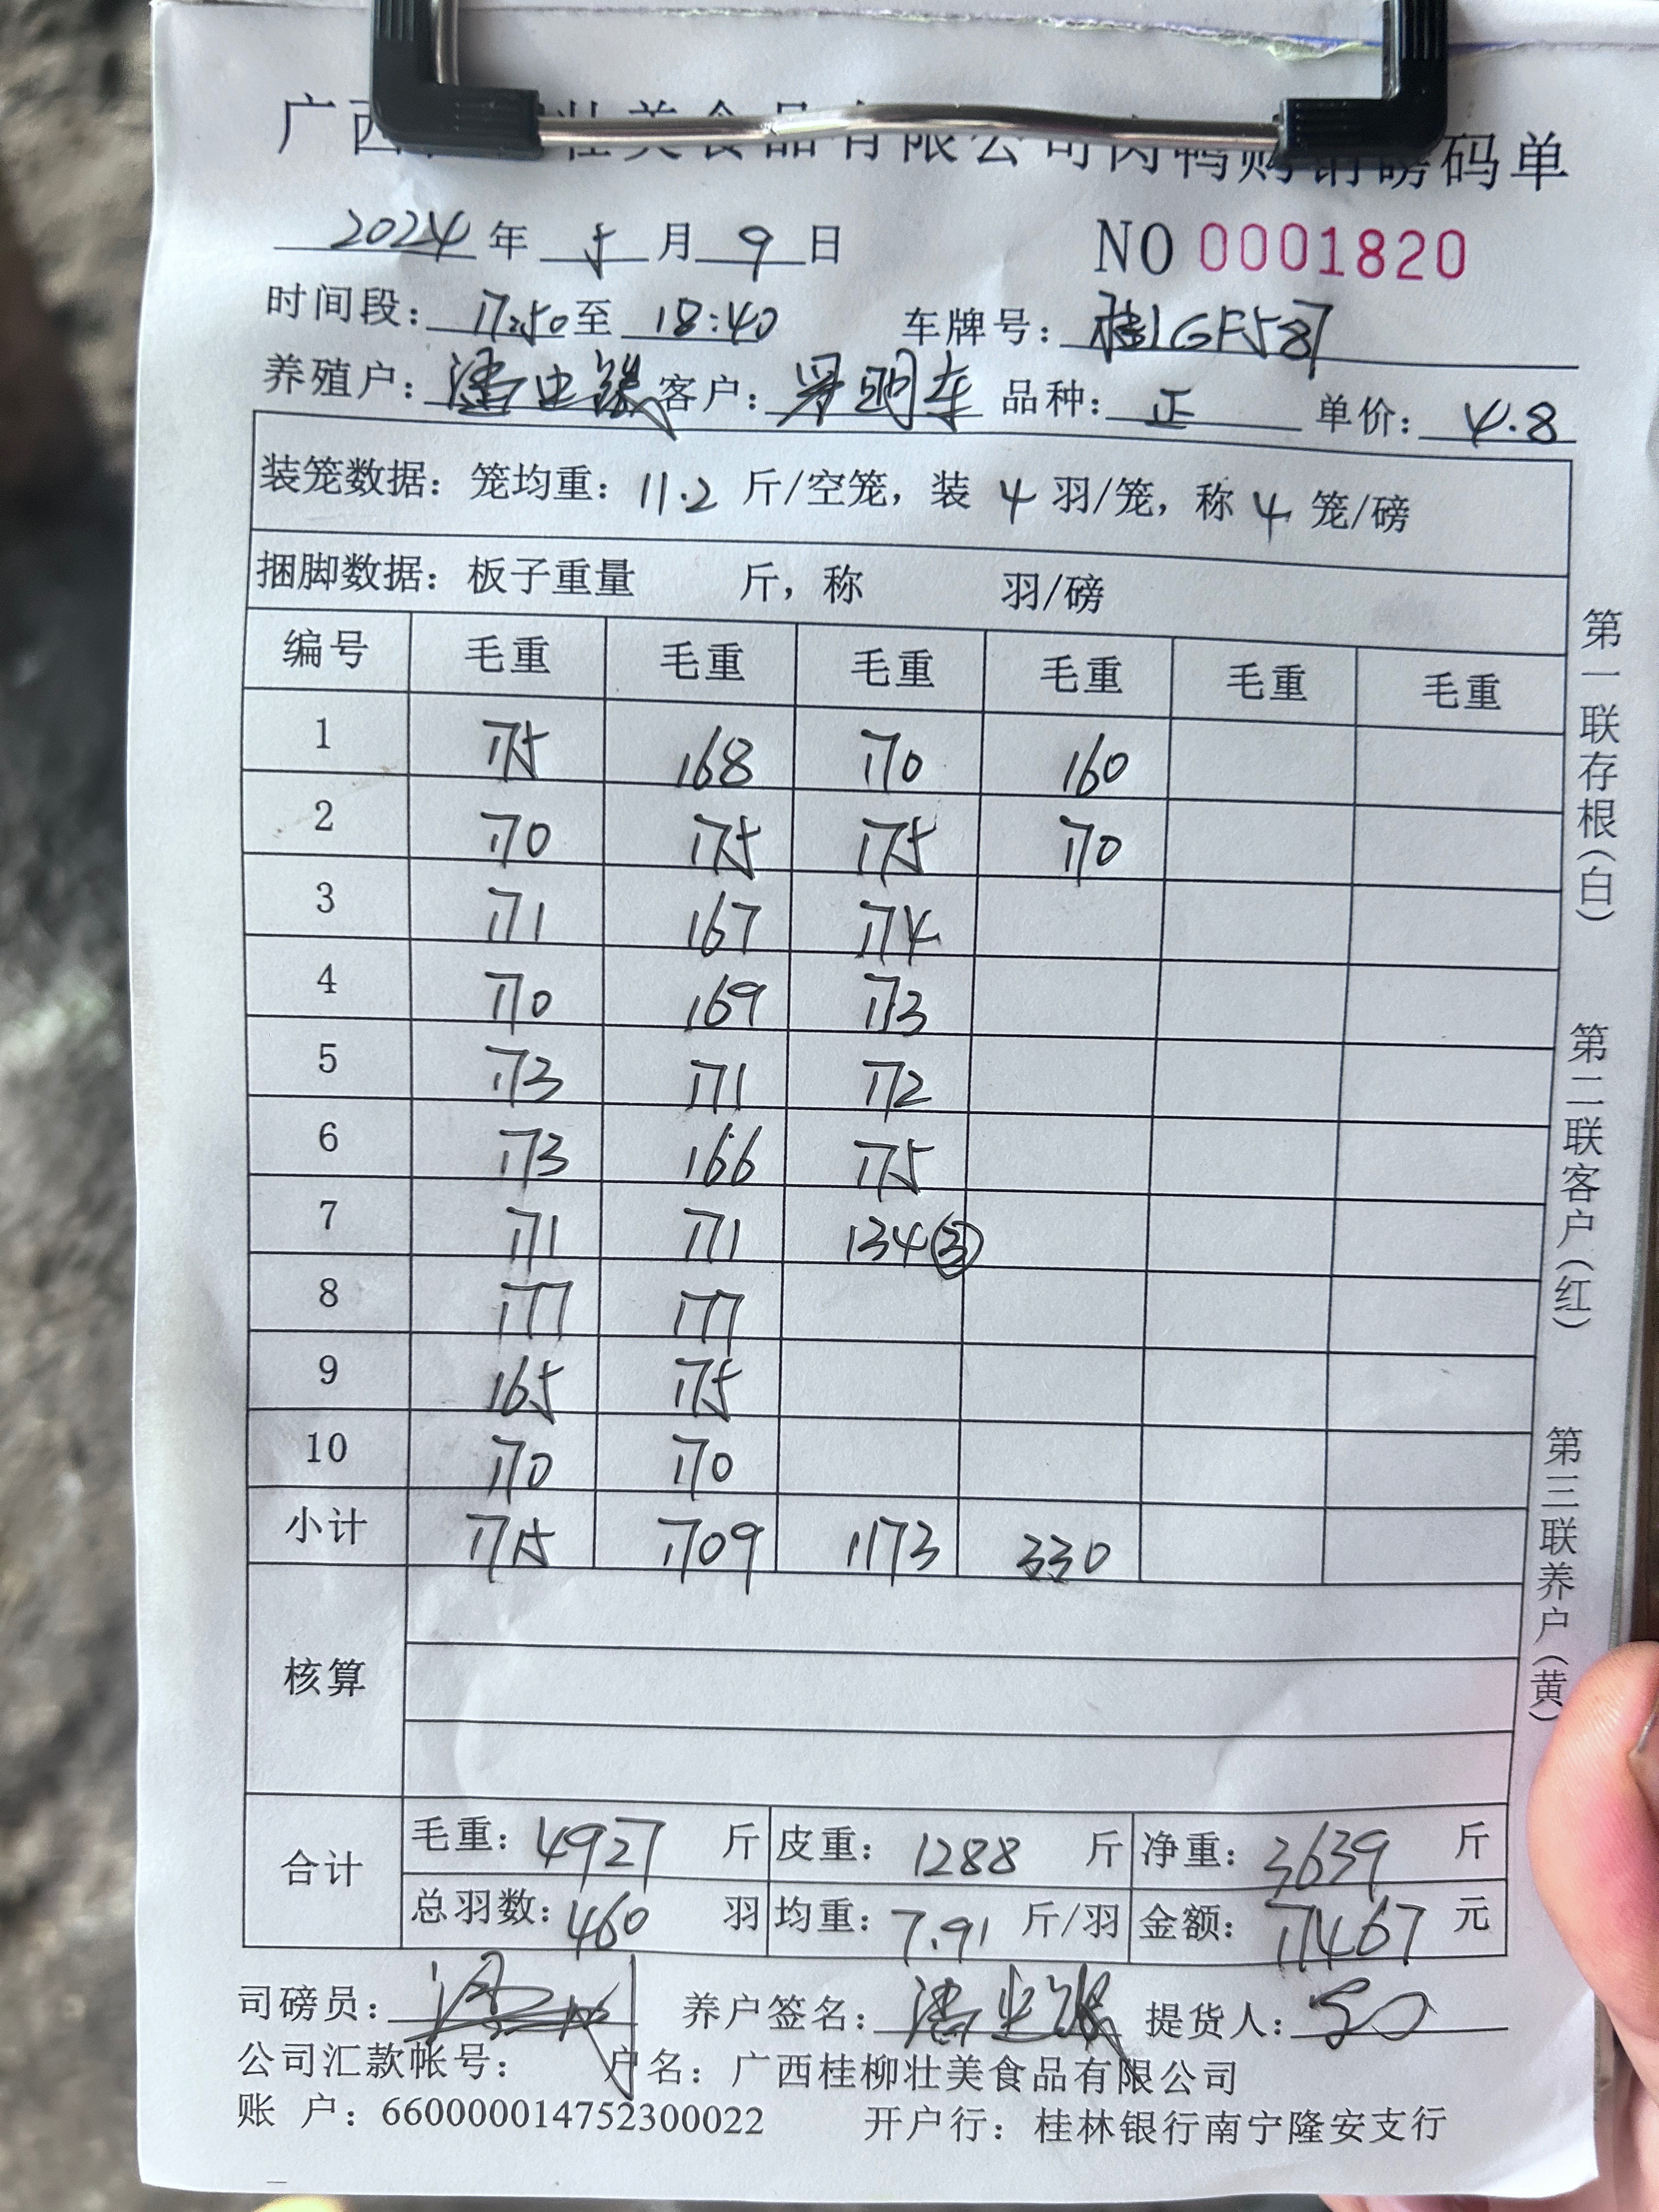 广西 壮美食品有限公司肉鸭购销磅码单
2024 年 5 月 9 日 NO 0001820
时间段: 17:50 至 18:40 车牌号: 桂LGF587
养殖户: 客户: 明车 品种: 正 单价: 4.8
装笼数据: 笼均重: 11.2 斤/空笼, 装 4 羽/笼, 称 4 笼/磅
捆脚数据: 板子重量 斤, 称 羽/磅
编号 毛重 毛重 毛重 毛重 毛重 毛重
1 175 168 170 160
2 170 175 175 170
3 171 167 174
4 170 169 173
5 173 171 172
6 173 166 175
7 171 171 134 ③
8 177 177
9 165 175
10 170 170
小计 1715 1709 1173 330
核算
合计
毛重: 4927 斤 皮重: 1288 斤 净重: 3639 斤
总羽数: 460 羽 均重: 7.91 斤/羽 金额: 17467 元
司磅员: 养户签名: 提货人:
公司汇款帐号: 户名: 广西桂柳壮美食品有限公司
账 户: 660000014752300022 开户行: 桂林银行南宁隆安支行
第一联存根(白)
第二联客户(红)
第三联养户(黄)